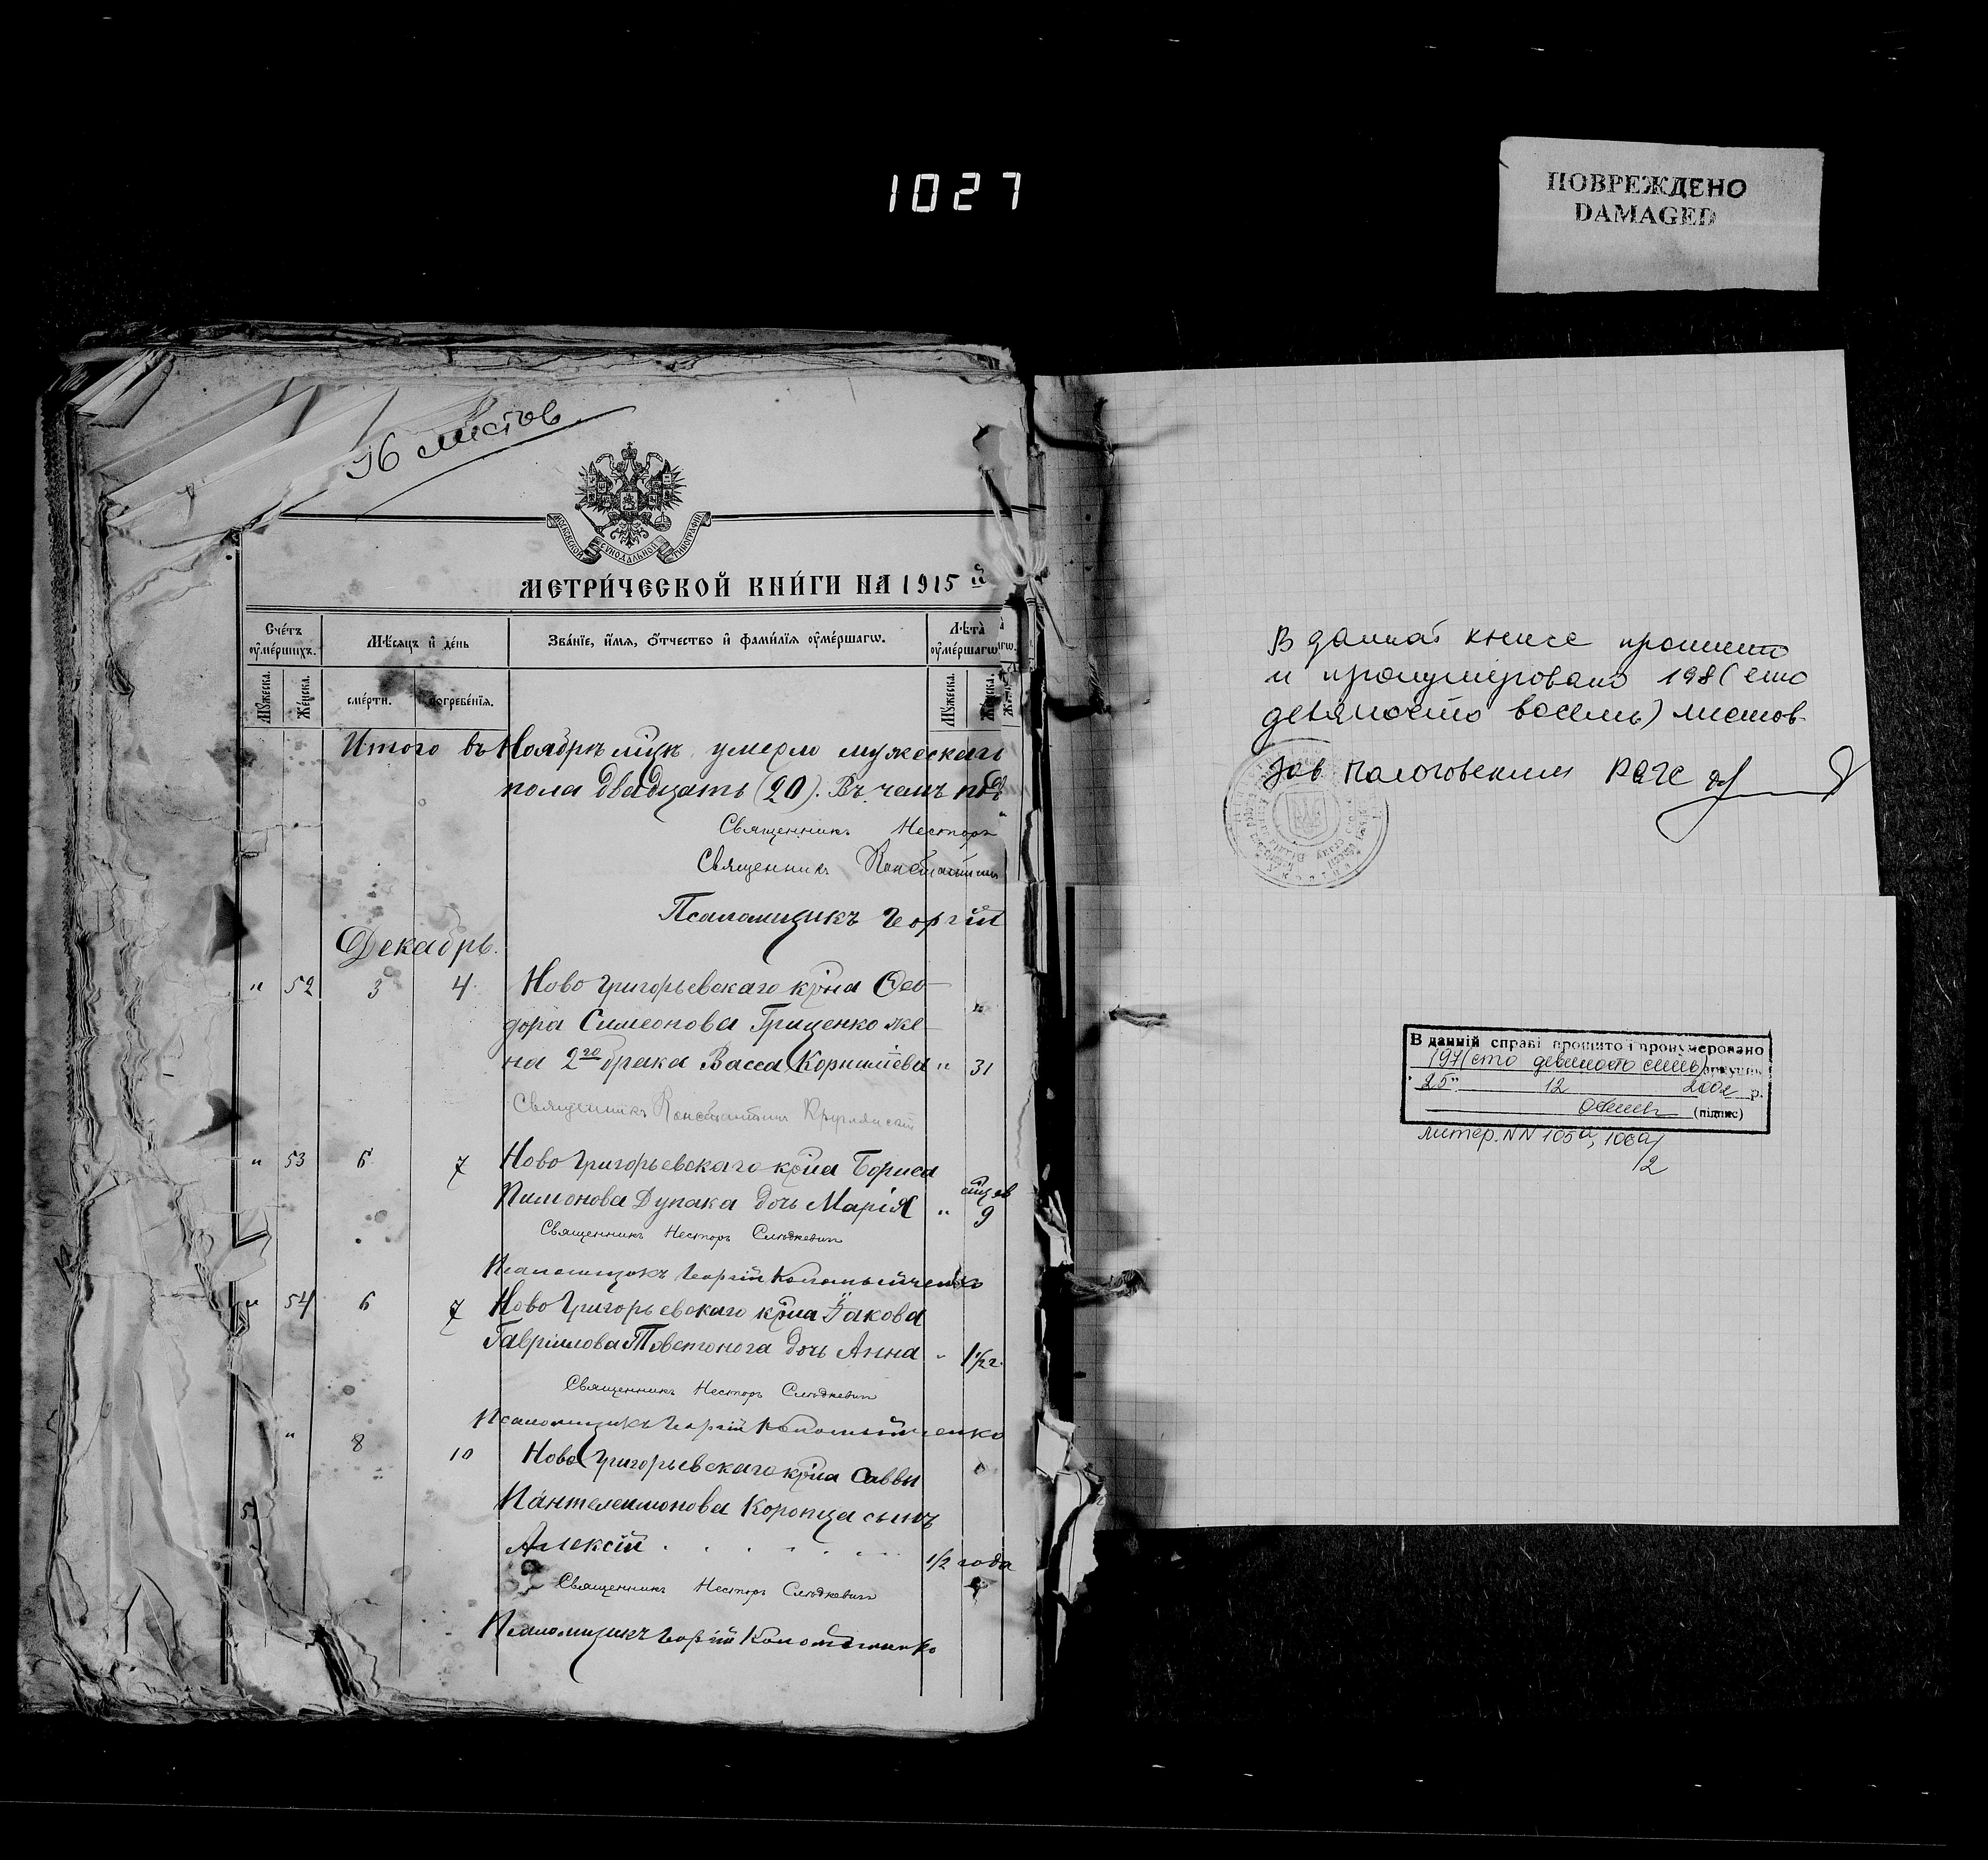 1027
ПОВРЕЖДЕНО
DAMAGED
96 листов
МОСКОВСКОЙ СѴНОДАЛЬНОЙ ТИПОГРАФІИ
МЕТРИ́ЧЕСКОЙ КНИ́ГИ НА 1915 й
Сче́тъ ᲂу҆ме́ршихъ.
Мѣ́сяцъ и҆ де́нь
Зва́нїе, и҆́мѧ, ѻ҆́тчество и҆ фами́лїѧ ᲂу҆ме́ршагѡ.
Лѣ́та ᲂу҆ме́ршагѡ
Мꙋ́жеска.
Же́нска.
сме́рти.
погребе́нїѧ.
Мꙋ́жеска.
Же́нска.
Итого въ Ноябрѣ мцѣ умерло мужескаго
пола двадцать (20). Въ чемъ под
Священникъ Несторъ
Священникъ Константинъ
Псаломщикъ Георгій
Декабрь.
" 52 3 4 Ново Григорьевскаго крна Ѳео-
дора Симеонова Гриценко же-
на 2го брака Васса Корнилiева " 31
Священникъ Константинъ
" 53 6 7 Ново Григорьевскаго крна Бориса
Пимонова Дупака дочь Марія " 9
Священникъ Несторъ Слюдкевичъ
Псаломщикъ Георгій Коломыйченко
" 54 6 7 Ново Григорьевскаго крна Іакова
Гавріилова Товстонога дочь Анна " 1½ г.
Священникъ Несторъ Слюдкевичъ
Псаломщикъ Георгій Коломыйченко
" 8 10 Ново Григорьевскаго крна Саввы
Пантелеимонова Коропца сынъ
Алексій 1/2 года
Священникъ Несторъ Слюдкевичъ
Псаломщикъ Георгій Коломыйченко
В данной книге прошито
и пронумеровано 198 (сто
девяносто восемь) листов.
Зав Пологовским РАГС
В данній справі прошито і пронумеровано
197 (сто девяносто семь) аркушів
"25" 12 2002 р.
(підпис)
литер. NN 105а, 106а/2